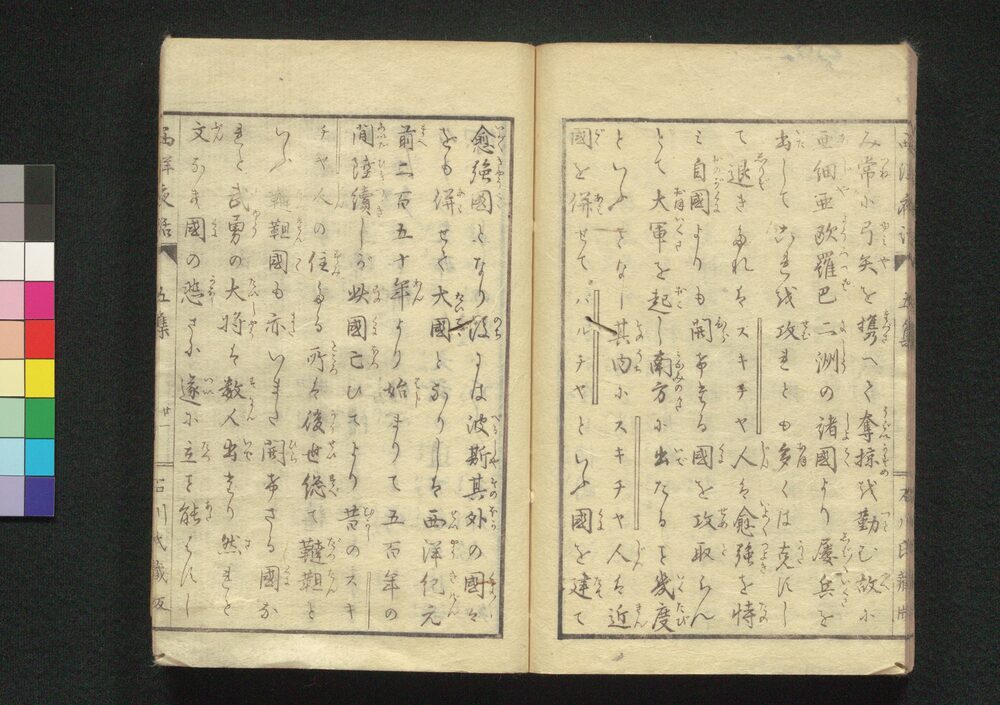 み常に弓矢を携へて奪掠を勤む故に
亜細亜欧羅巴二洲の諸國より屡兵を
出してこれを攻れとも多くは克たすし
て退きたれはスキチヤ人は愈強を恃
み自國よりも開けたる國を攻取らん
とて大軍を起し南方に出たること幾度
といふことなし其内にスキチヤ人は近
國を併せてパルチヤといふ國を建て
愈強國となり後には波斯其外の國々
をも併せて大國となりしは西洋紀元
前二百五十年より始まりて五百年の
間陸續しが此國亡ひてより昔のスキ
チヤ人の住たる所は後世総て韃靼と
いふ韃靼國も亦いまた開けさる國な
れと武勇の大将は数人出たり然れと
文なき國の悲さに遂に立こと能はすし
西洋夜話
五集
廿一
石川氏蔵版